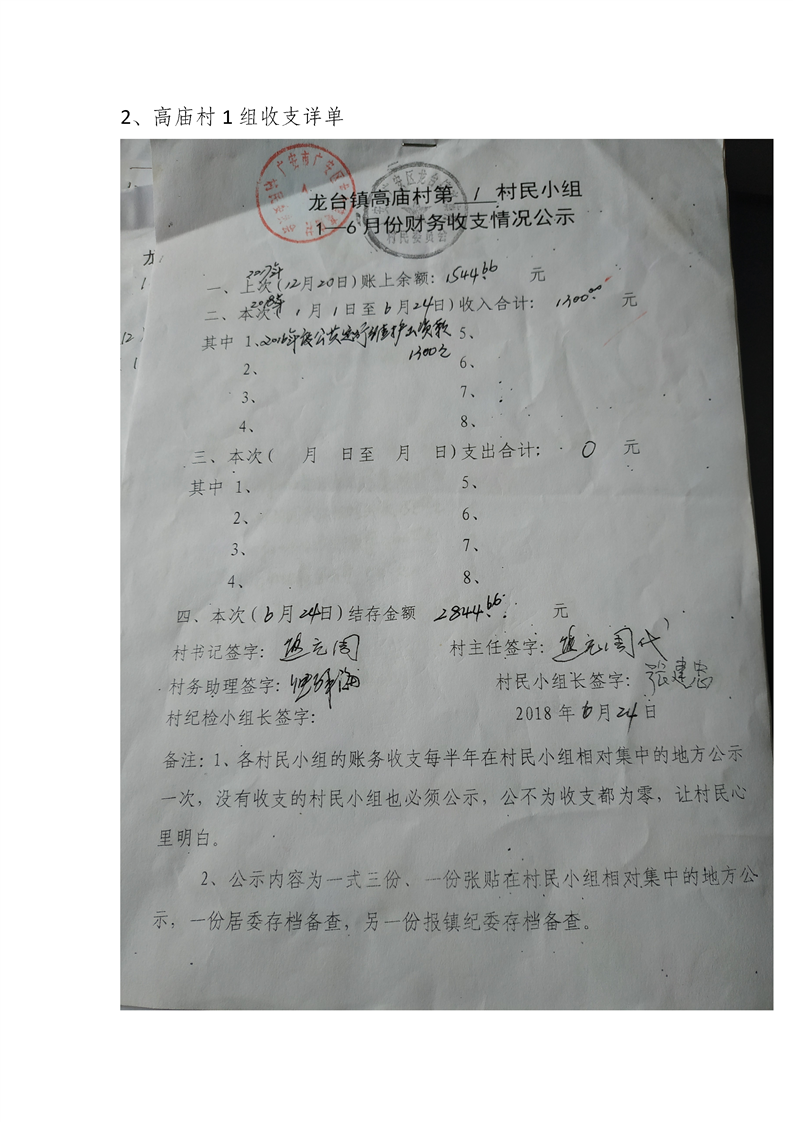 2、高庙村1组收支详单
龙台镇高庙村第 1 村民小组
1—6月份财务收支情况公示
2017年
一、上次(12月20日)账上余额: 1544.66 元
2018年
二、本次(1月1日至6月24日)收入合计: 1300.00 元
其中 1、2016年度公共运行维护出资款 5、
1300元
2、 6、
3、 7、
4、 8、
三、本次( 月 日至 月 日)支出合计: 0 元
其中 1、 5、
2、 6、
3、 7、
4、 8、
四、本次(6月24日)结存金额 2844.66 元
村书记签字: 村主任签字:
村务助理签字: 村民小组长签字: 张建忠
村纪检小组长签字: 2018年6月24日
备注:1、各村民小组的账务收支每半年在村民小组相对集中的地方公示
一次,没有收支的村民小组也必须公示,公不为收支都为零,让村民心
里明白。
2、公示内容为一式三份、一份张贴在村民小组相对集中的地方公
示,一份居委存档备查,另一份报镇纪委存档备查。
村民委员会